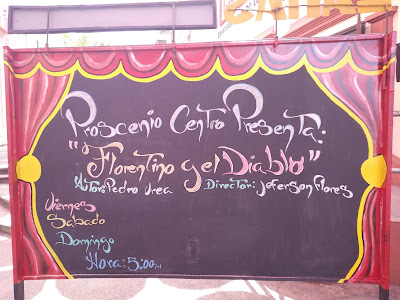 Proscenio Centro Presenta:
"Florentino y el Diablo"
Autor: Pedro Urea Director: Jeferson Flores
Viernes
Sabado
Domingo
Hora: 5:00PM